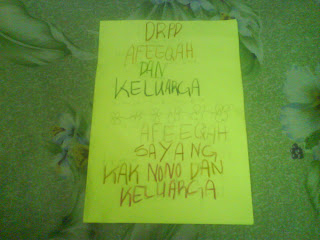 DRPD
AFEEQAH
DAN
KELUARGA
AFEEQAH
SAYANG
KAK NONO DAN
KELUARGA